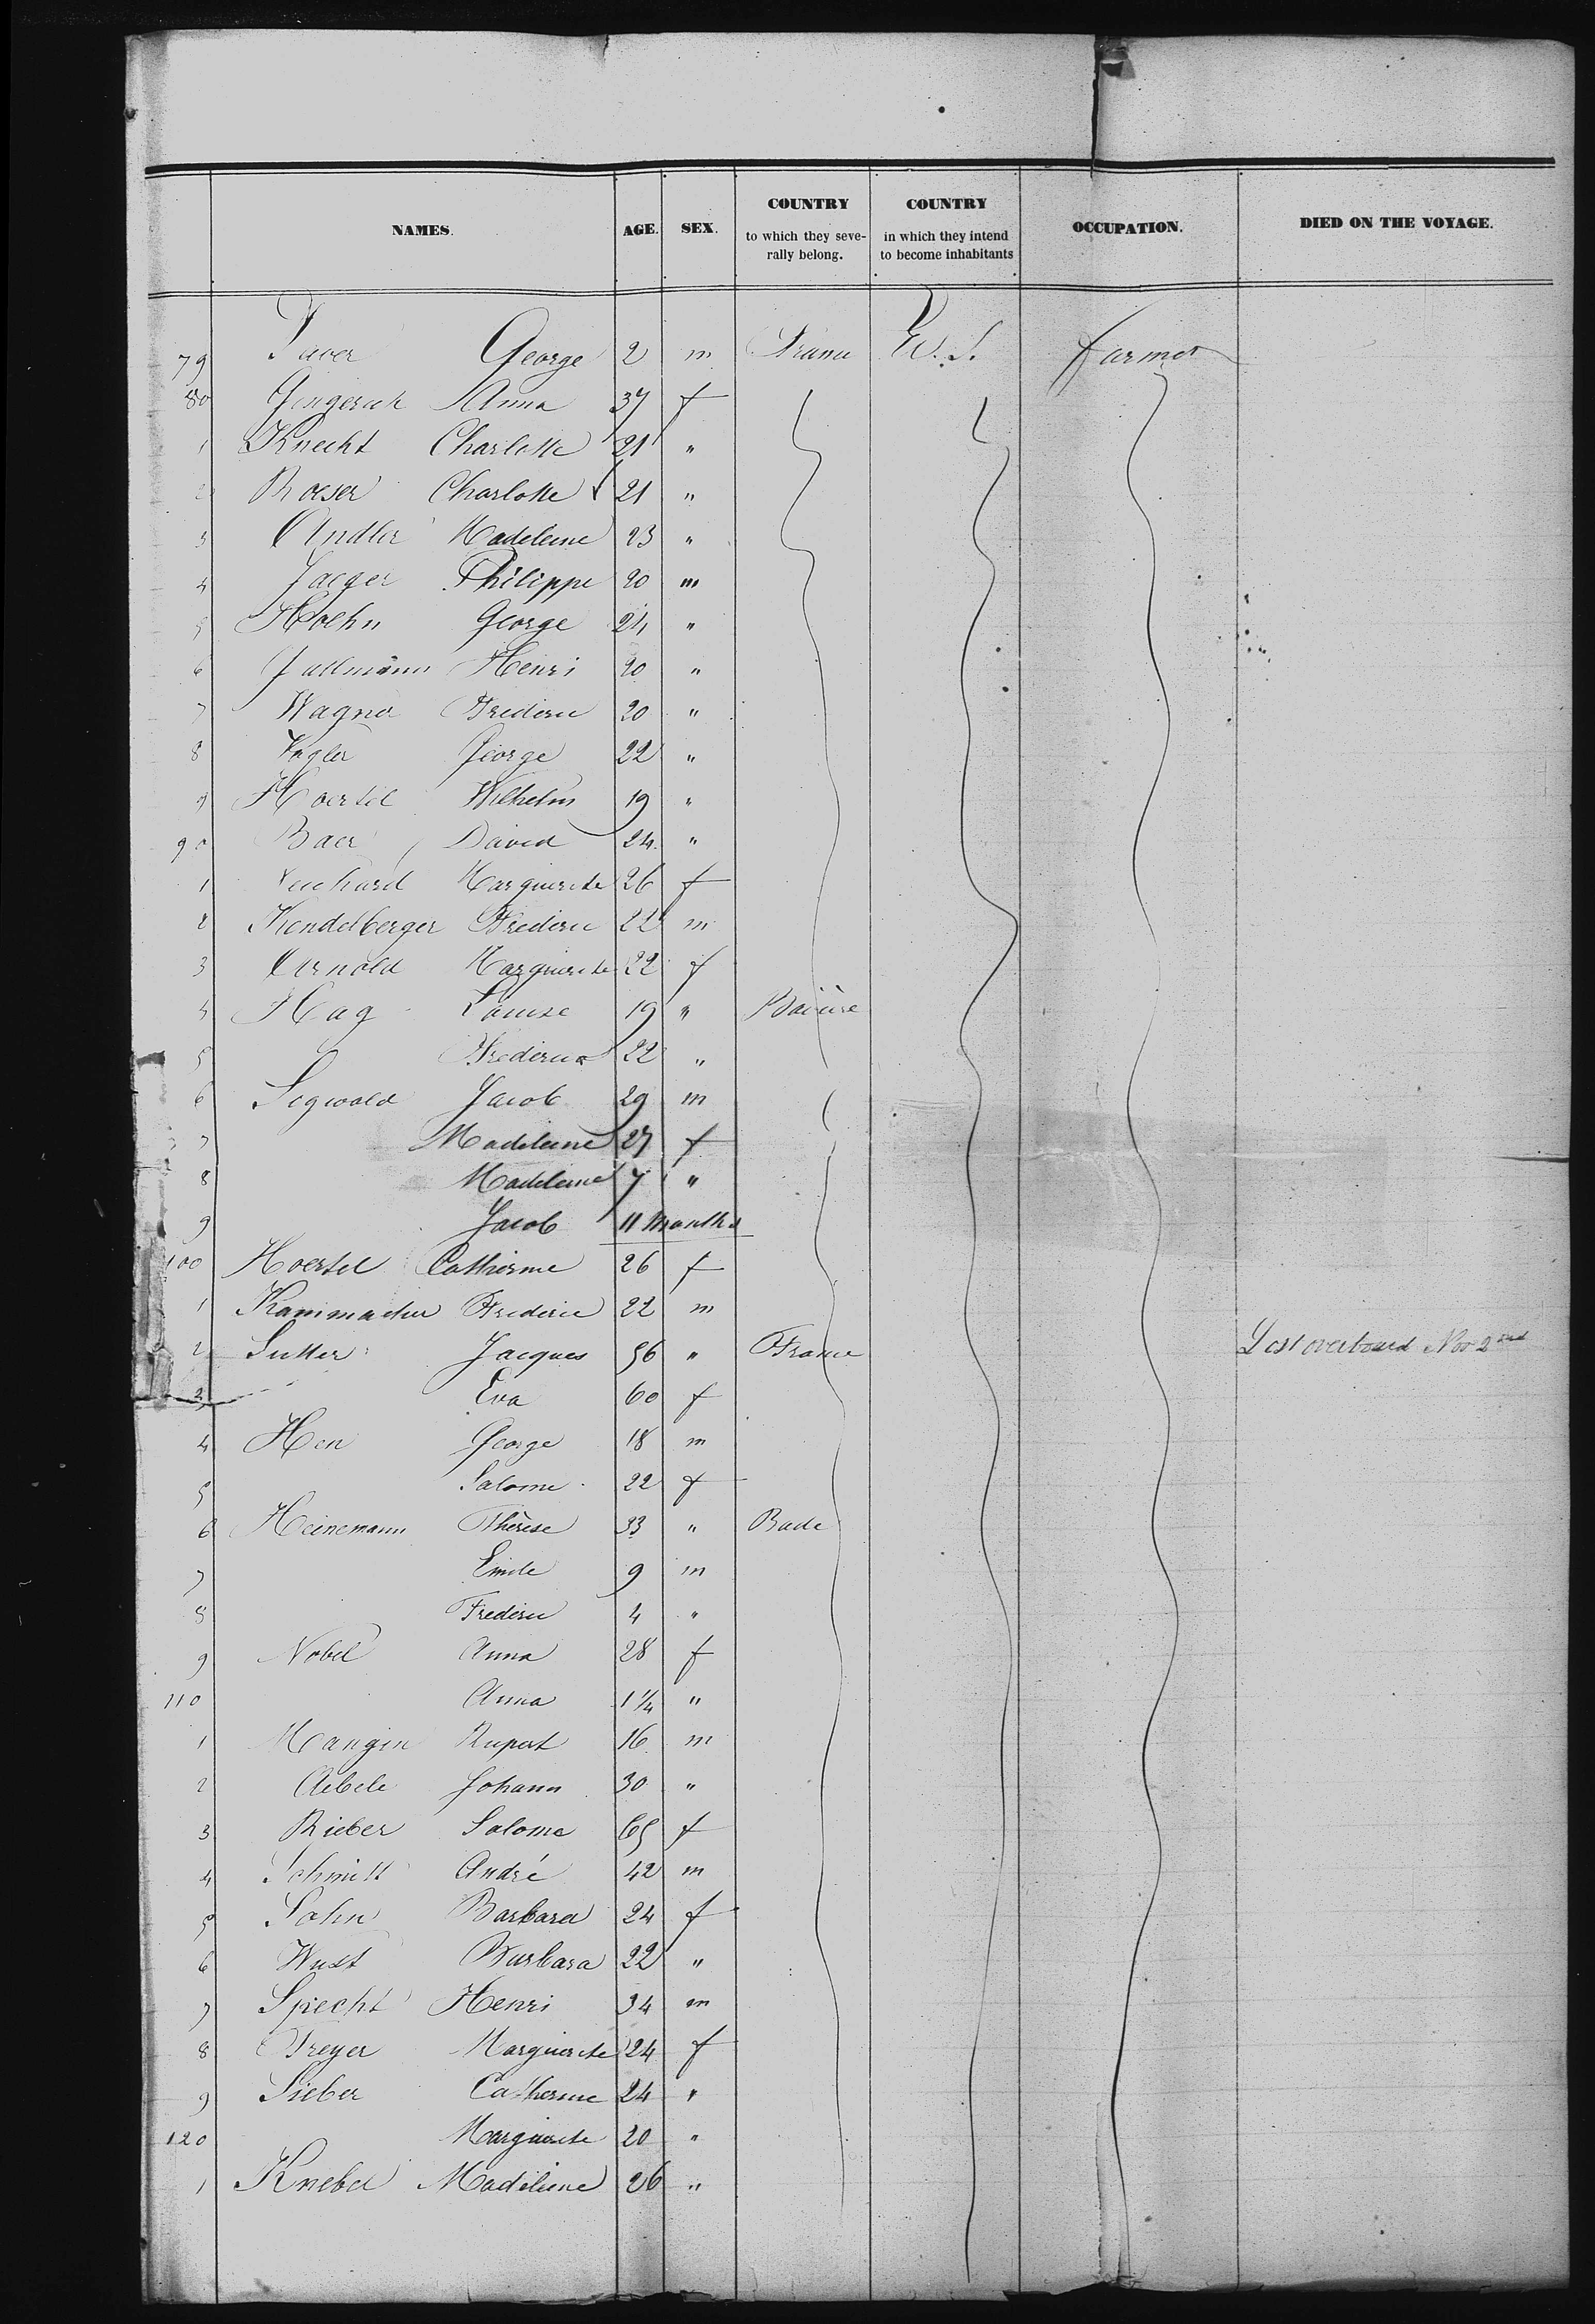 NAMES. AGE. SEX. COUNTRY to which they seve- rally belong. COUNTRY in which they intend to become inhabitants OCCUPATION. DIED ON THE VOYAGE.
79 George 2 m France U.S. farmer
80 Gingerich Anna 37 f
1 Knecht Charlotte 21 "
2 Roeser Charlotte 21 "
3 Andler Madeleine 23 "
4 Jaeger Philippe 20 m
5 Hoehn George 24 "
6 Henri 20 "
7 Wagner Frederic 20 "
8 Vogler George 22 "
9 Hoertel Wilhelm 19 "
90 Baer David 24 "
1 Marguerite 26 f
2 Kendelberger Frederic 22 m
3 Arnold Marguerite 22 f
4 Hag Louise 19 " Bavière
5 Frederica 22 "
6 Sigwald Jacob 29 m
7 Madeleine 27 f
8 Madeleine 7 "
9 Jacob 11 Months
100 Hoertel Catherine 26 f
1 Kammacher Frederic 22 m
2 Sutter Jacques 56 " France Lost overboard Nov 2nd
3 Eva 60 f
4 Hen George 18 m
5 Salome 22 f
6 Heinemann Thèrese 33 " Bade
7 Emile 9 m
8 Frederic 4 "
9 Nobel Anna 28 f
110 Anna 1 1/4 "
1 Mangin Rupert 16 m
2 Aebele Johann 30 "
3 Rieber Salome 65 f
4 Schmitt André 42 m
5 Sohn Barbara 24 f
6 Wust Barbara 22 "
7 Specht Henri 34 m
8 Freyer Marguerite 24 f
9 Sieber Catherine 24 "
120 Marguerite 20 "
1 Knebel Madeleine 26 "